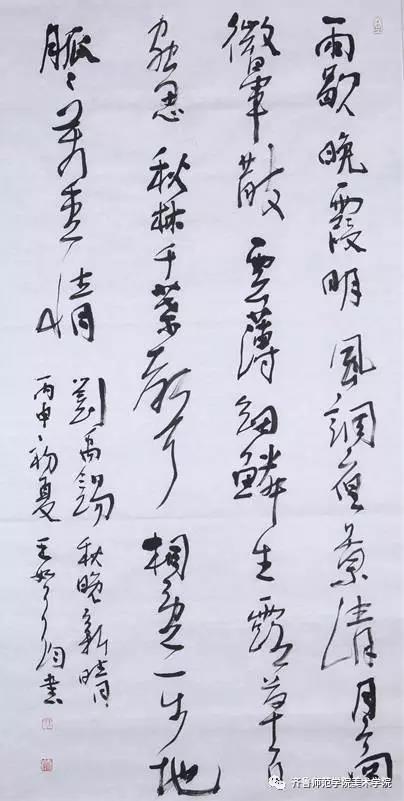 雨歇晚霞明風調夜景清月高
微暈散雲薄細鱗生露草百
蟲思秋林千葉聲相望一步地
脈〻萬重情
劉禹錫秋晚新晴
丙申初夏王书
齐鲁师范学院美术学院